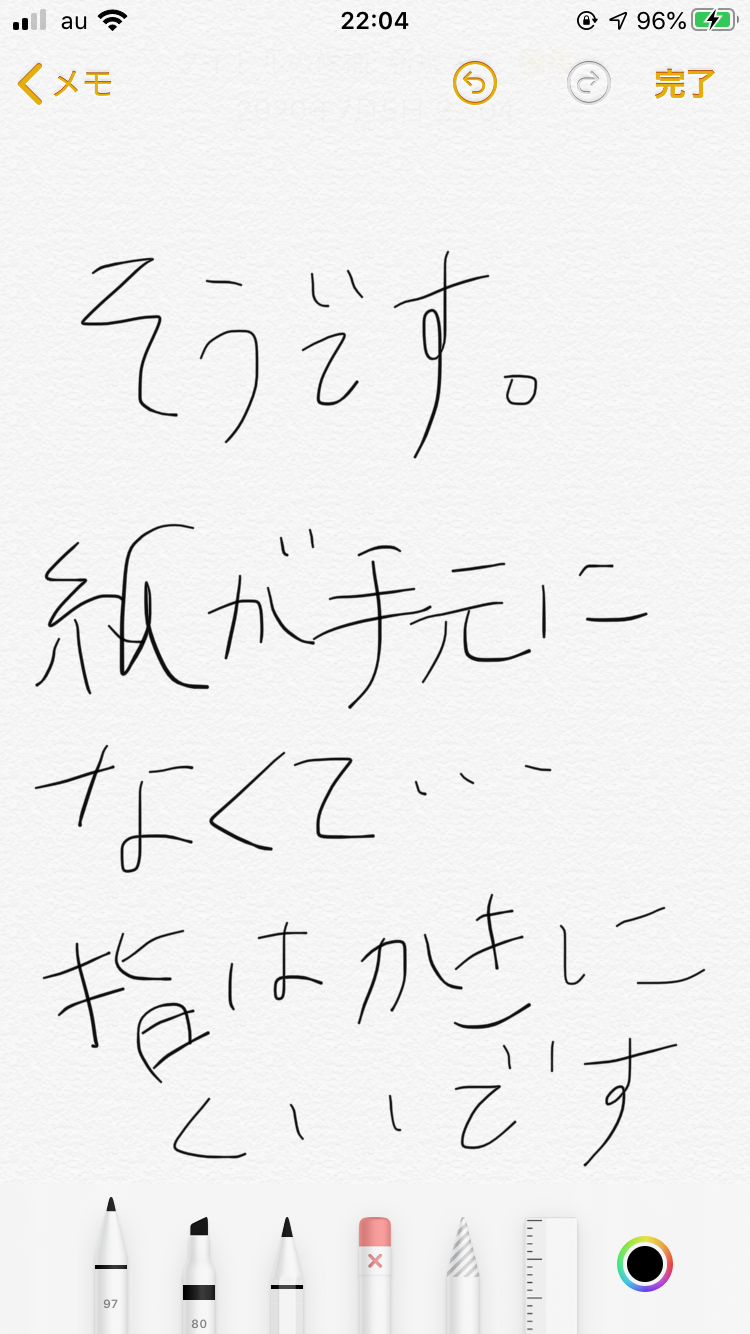 au 22:04 96%
メモ 完了
そうです。
紙が手元に
なくて…
指はかきに
くいです
97
80